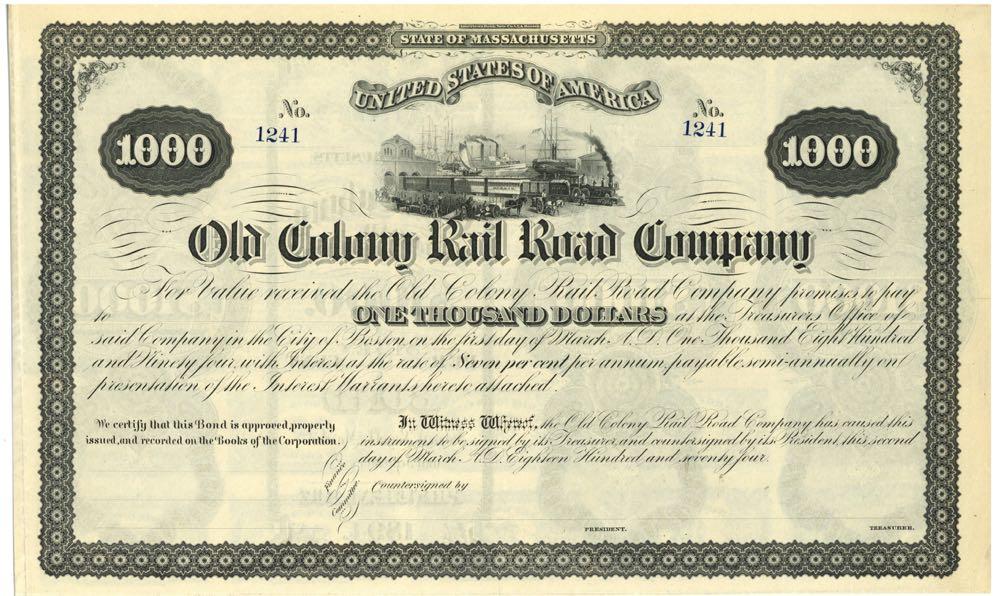 STATE OF MASSACHUSETTS
UNITED STATES OF AMERICA
No. 1241
No. 1241
1000
1000
Old Colony Rail Road Company
For Value received the Old Colony Rail Road Company promises to pay
to ONE THOUSAND DOLLARS at the Treasurers Office of
said Company in the City of Boston, on the first day of March A. D. One Thousand Eight Hundred
and Ninety four, with Interest at the rate of Seven per cent per annum, payable semi-annually on
presentation of the Interest Warrants hereto attached.
We certify that this Bond is approved, properly
issued, and recorded on the Books of the Corporation.
Finance
Committee
In Witness Whereof, the Old Colony Rail Road Company has caused this
instrument to be signed by its Treasurer, and countersigned by its President, this second
day of March A. D. Eighteen Hundred and seventy four.
Countersigned by
PRESIDENT.
TREASURER.